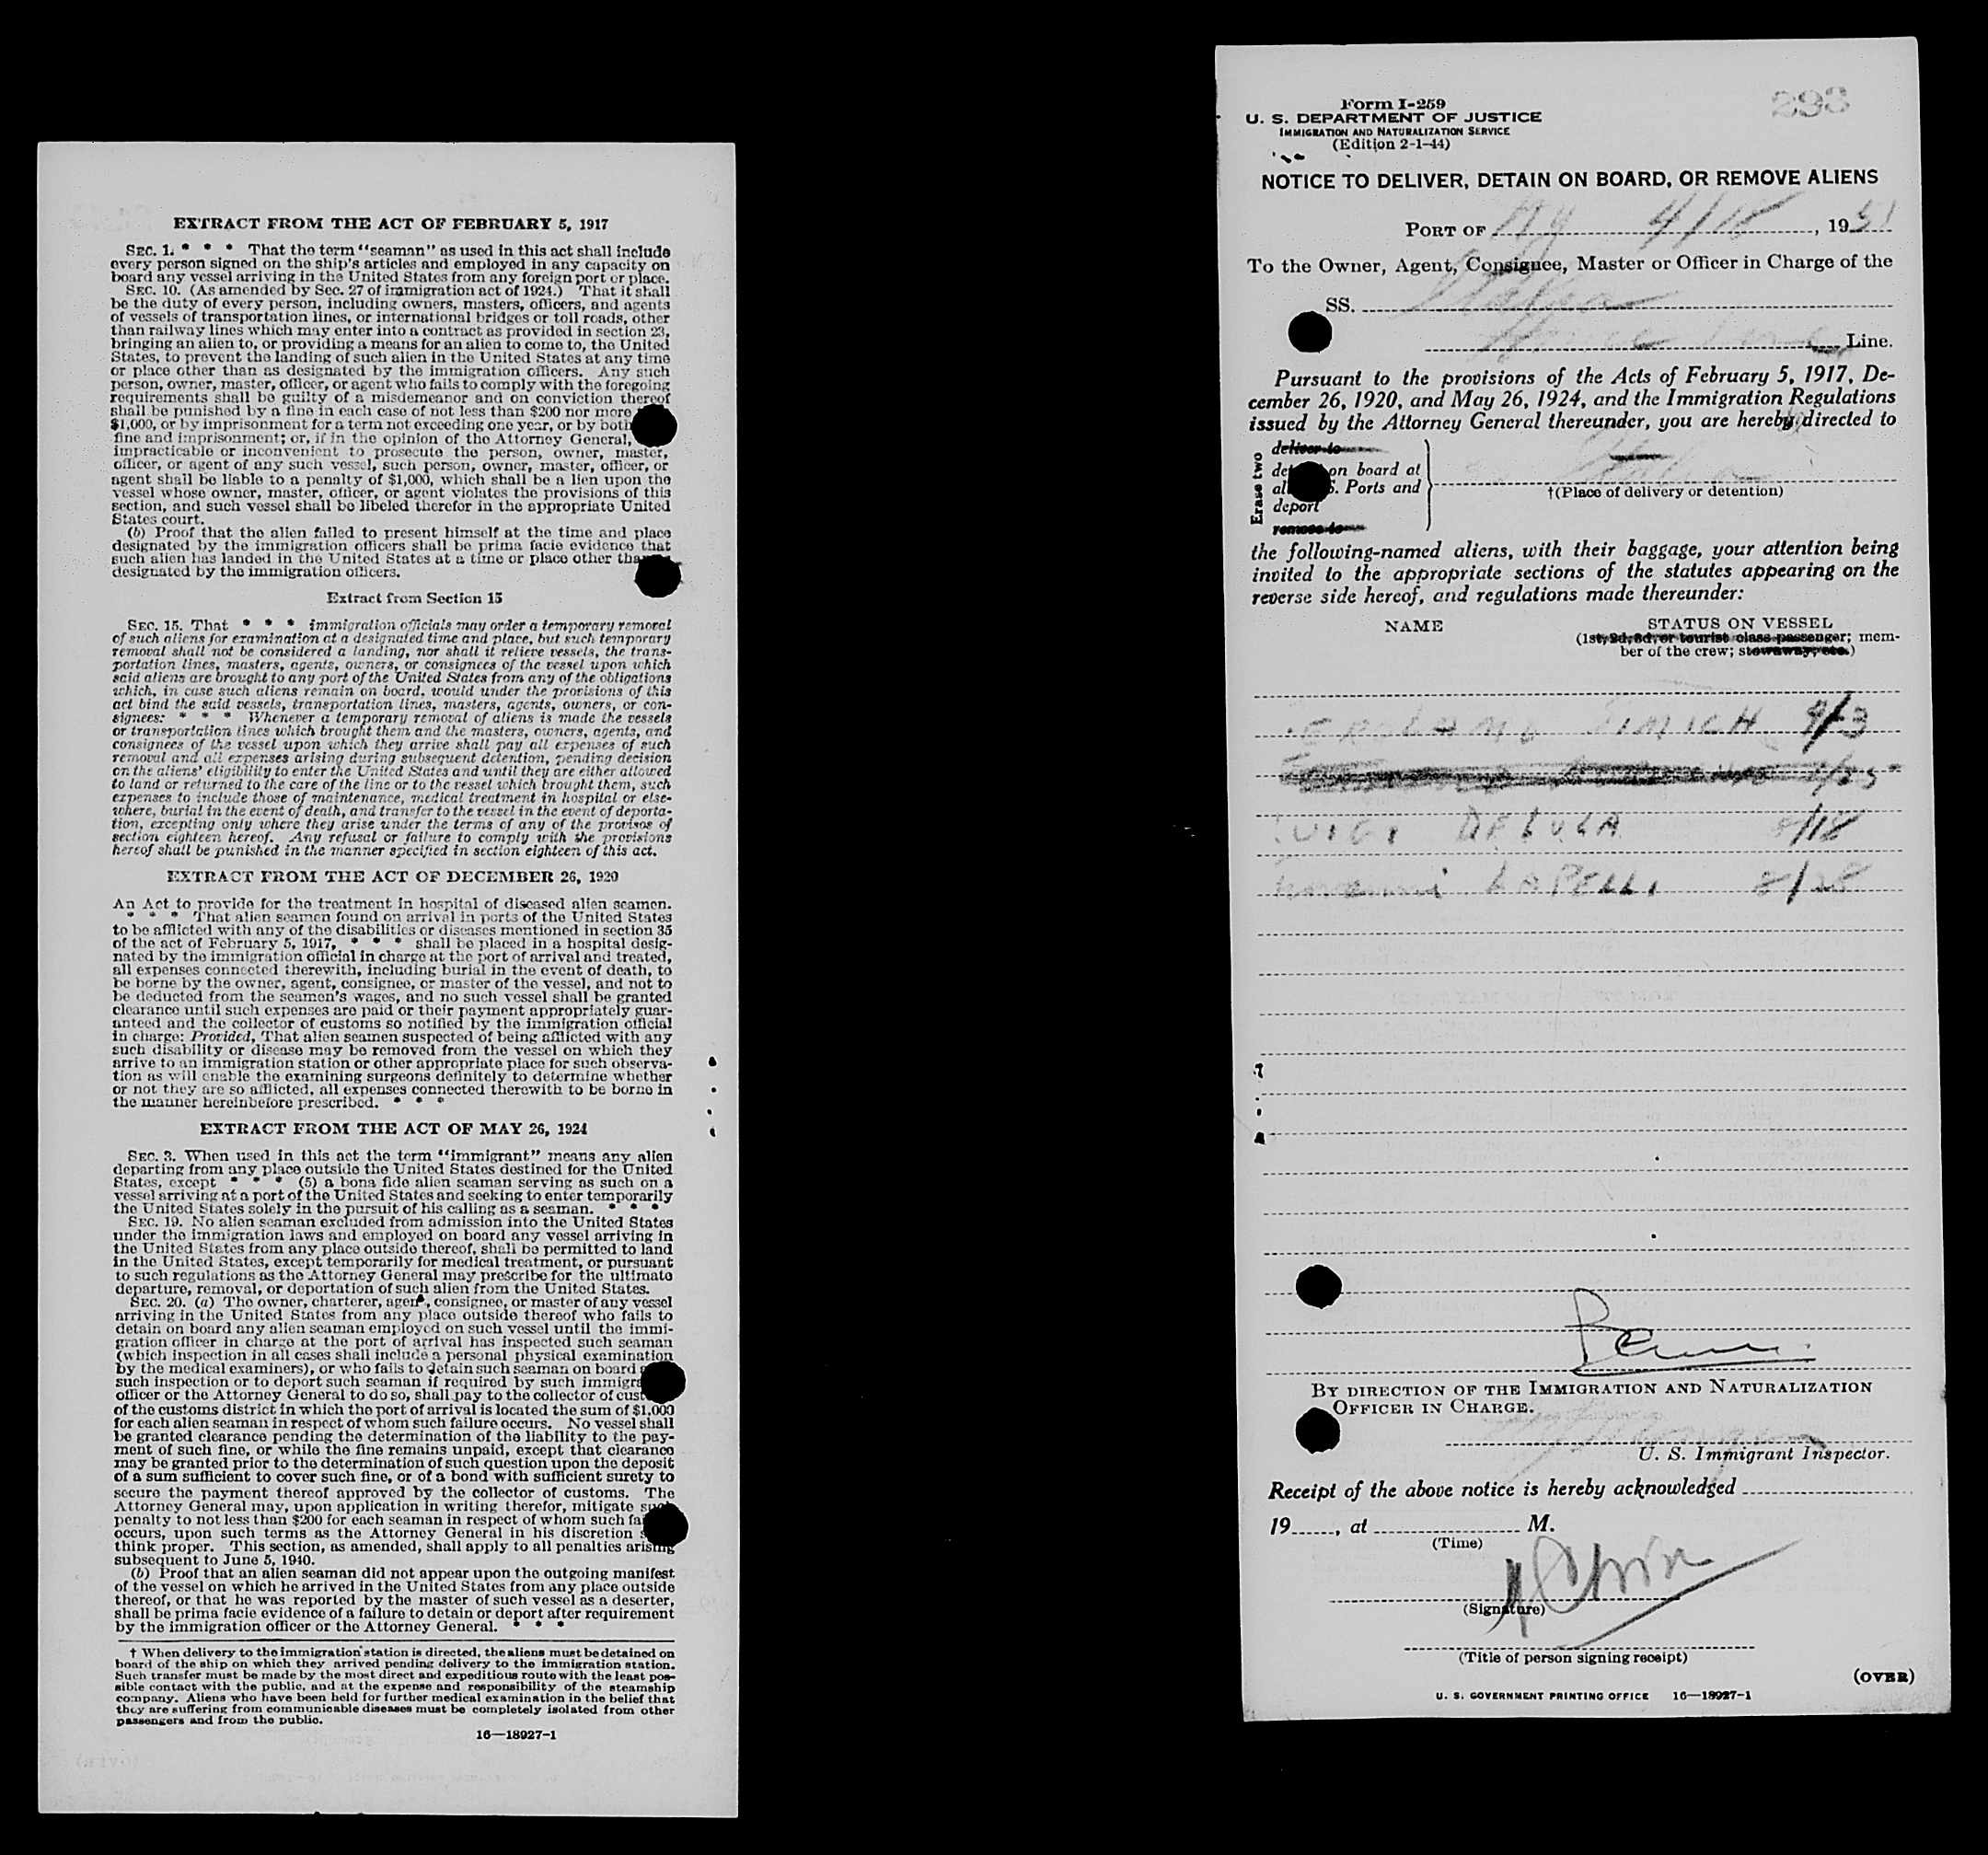 EXTRACT FROM THE ACT OF FEBRUARY 5, 1917
SEC. 1. * * * That the term "seaman" as used in this act shall include
every person signed on the ship's articles and employed in any capacity on
board any vessel arriving in the United States from any foreign port or place.
SEC. 10. (As amended by Sec. 27 of immigration act of 1924.) That it shall
be the duty of every person, including owners, masters, officers, and agents
of vessels of transportation lines, or international bridges or toll roads, other
than railway lines which may enter into a contract as provided in section 23,
bringing an alien to, or providing a means for an alien to come to, the United
States, to prevent the landing of such alien in the United States at any time
or place other than as designated by the immigration officers. Any such
person, owner, master, officer, or agent who fails to comply with the foregoing
requirements shall be guilty of a misdemeanor and on conviction thereof
shall be punished by a fine in each case of not less than $200 nor more
$1,000, or by imprisonment for a term not exceeding one year, or by both
fine and imprisonment; or, if in the opinion of the Attorney General,
impracticable or inconvenient to prosecute the person, owner, master,
officer, or agent of any such vessel, such person, owner, master, officer, or
agent shall be liable to a penalty of $1,000, which shall be a lien upon the
vessel whose owner, master, officer, or agent violates the provisions of this
section, and such vessel shall be libeled therefor in the appropriate United
States court.
(b) Proof that the alien failed to present himself at the time and place
designated by the immigration officers shall be prima facie evidence that
such alien has landed in the United States at a time or place other than
designated by the immigration officers.
Extract from Section 15
SEC. 15. That * * * immigration officials may order a temporary removal
of such aliens for examination at a designated time and place, but such temporary
removal shall not be considered a landing, nor shall it relieve vessels, the trans-
portation lines, masters, agents, owners, or consignees of the vessel upon which
said aliens are brought to any port of the United States from any of the obligations
which, in case such aliens remain on board, would under the provisions of this
act bind the said vessels, transportation lines, masters, agents, owners, or con-
signees: * * * Whenever a temporary removal of aliens is made the vessels
or transportation lines which brought them and the masters, owners, agents, and
consignees of the vessel upon which they arrive shall pay all expenses of such
removal and all expenses arising during subsequent detention, pending decision
on the aliens' eligibility to enter the United States and until they are either allowed
to land or returned to the care of the line or to the vessel which brought them, such
expenses to include those of maintenance, medical treatment in hospital or else-
where, burial in the event of death, and transfer to the vessel in the event of deporta-
tion, excepting only where they arise under the terms of any of the provisos of
section eighteen hereof. Any refusal or failure to comply with the provisions
hereof shall be punished in the manner specified in section eighteen of this act.
EXTRACT FROM THE ACT OF DECEMBER 26, 1920
An Act to provide for the treatment in hospital of diseased alien seamen.
* * * That alien seamen found on arrival in ports of the United States
to be afflicted with any of the disabilities or diseases mentioned in section 35
of the act of February 5, 1917, * * * shall be placed in a hospital desig-
nated by the immigration official in charge at the port of arrival and treated,
all expenses connected therewith, including burial in the event of death, to
be borne by the owner, agent, consignee, or master of the vessel, and not to
be deducted from the seamen's wages, and no such vessel shall be granted
clearance until such expenses are paid or their payment appropriately guar-
anteed and the collector of customs so notified by the immigration official
in charge: Provided, That alien seamen suspected of being afflicted with any
such disability or disease may be removed from the vessel on which they
arrive to an immigration station or other appropriate place for such observa-
tion as will enable the examining surgeons definitely to determine whether
or not they are so afflicted, all expenses connected therewith to be borne in
the manner hereinbefore prescribed. * * *
EXTRACT FROM THE ACT OF MAY 26, 1924
SEC. 3. When used in this act the term "immigrant" means any alien
departing from any place outside the United States destined for the United
States, except * * * (5) a bona fide alien seaman serving as such on a
vessel arriving at a port of the United States and seeking to enter temporarily
the United States solely in the pursuit of his calling as a seaman. * * *
SEC. 19. No alien seaman excluded from admission into the United States
under the immigration laws and employed on board any vessel arriving in
the United States from any place outside thereof, shall be permitted to land
in the United States, except temporarily for medical treatment, or pursuant
to such regulations as the Attorney General may prescribe for the ultimate
departure, removal, or deportation of such alien from the United States.
SEC. 20. (a) The owner, charterer, agent, consignee, or master of any vessel
arriving in the United States from any place outside thereof who fails to
detain on board any alien seaman employed on such vessel until the immi-
gration officer in charge at the port of arrival has inspected such seaman
(which inspection in all cases shall include a personal physical examination
by the medical examiners), or who fails to detain such seaman on board
such inspection or to deport such seaman if required by such
officer or the Attorney General to do so, shall pay to the collector of
of the customs district in which the port of arrival is located the sum of $1,000
for each alien seaman in respect of whom such failure occurs. No vessel shall
be granted clearance pending the determination of the liability to the pay-
ment of such fine, or while the fine remains unpaid, except that clearance
may be granted prior to the determination of such question upon the deposit
of a sum sufficient to cover such fine, or of a bond with sufficient surety to
secure the payment thereof approved by the collector of customs. The
Attorney General may, upon application in writing therefor, mitigate such
penalty to not less than $200 for each seaman in respect of whom such
occurs, upon such terms as the Attorney General in his discretion
think proper. This section, as amended, shall apply to all penalties arising
subsequent to June 5, 1940.
(b) Proof that an alien seaman did not appear upon the outgoing manifest
of the vessel on which he arrived in the United States from any place outside
thereof, or that he was reported by the master of such vessel as a deserter,
shall be prima facie evidence of a failure to detain or deport after requirement
by the immigration officer or the Attorney General. * * *
† When delivery to the immigration station is directed, the aliens must be detained on
board of the ship on which they arrived pending delivery to the immigration station.
Such transfer must be made by the most direct and expeditious route with the least pos-
sible contact with the public, and at the expense and responsibility of the steamship
company. Aliens who have been held for further medical examination in the belief that
they are suffering from communicable diseases must be completely isolated from other
passengers and from the public.
16—18927-1
Form I-259
293
U. S. DEPARTMENT OF JUSTICE
IMMIGRATION AND NATURALIZATION SERVICE
(Edition 2-1-44)
NOTICE TO DELIVER, DETAIN ON BOARD, OR REMOVE ALIENS
PORT OF NY 4/18, 1951
To the Owner, Agent, Consignee, Master or Officer in Charge of the
SS.
Line.
Pursuant to the provisions of the Acts of February 5, 1917, De-
cember 26, 1920, and May 26, 1924, and the Immigration Regulations
issued by the Attorney General thereunder, you are hereby directed to
Erase two
deliver to
on board at
Ports and
deport
remove to
†(Place of delivery or detention)
the following-named aliens, with their baggage, your attention being
invited to the appropriate sections of the statutes appearing on the
reverse side hereof, and regulations made thereunder:
NAME STATUS ON VESSEL
(1st, 2d, 3d, or tourist class passenger; mem-
ber of the crew; stowaway, etc.)
LUIGI DELUCA 8/18
LAPELLI 8/28
BY DIRECTION OF THE IMMIGRATION AND NATURALIZATION
OFFICER IN CHARGE.
U. S. Immigrant Inspector.
Receipt of the above notice is hereby acknowledged
19 , at M.
(Time)
(Signature)
(Title of person signing receipt)
(OVER)
U. S. GOVERNMENT PRINTING OFFICE 16—18927-1